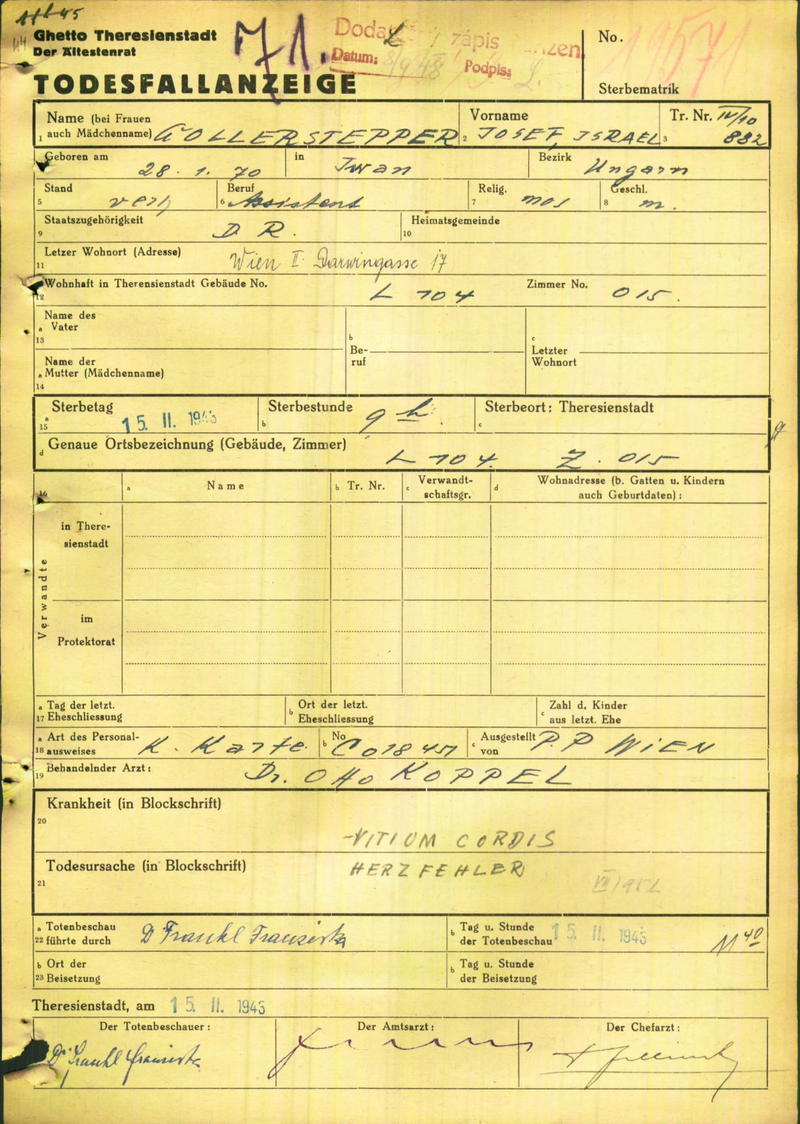 Ghetto Theresienstadt
Der Ältestenrat
71.
Datum:
Podpis:
No. 19571
Sterbematrik
TODESFALLANZEIGE
Name (bei Frauen
1 auch Mädchenname) GOLLERSTEPPER
Vorname
2 JOSEF, ISRAEL
Tr. Nr. IV/10
3 882
Geboren am 28. 1. 70 in Iwan Bezirk Ungarn
Stand
5 verh
Beruf
6 Assistent
Relig.
7 mos
Geschl.
8 m.
Staatszugehörigkeit
9 D R.
Heimatsgemeinde
10
Letzer Wohnort (Adresse)
11 Wien II. Darwingasse 17
12 Wohnhaft in Therensienstadt Gebäude No. L 104 Zimmer No. 015.
Name des
a Vater
13
b Be-
ruf
c Letzter
Wohnort
Name der
a Mutter (Mädchenname)
14
a Sterbetag
15 15. II. 1943
b Sterbestunde 9 h.
c Sterbeort: Theresienstadt
d Genaue Ortsbezeichnung (Gebäude, Zimmer) L 104 Z. 015
16 a Name b Tr. Nr. c Verwandt-
schaftsgr. d Wohnadresse (b. Gatten u. Kindern
auch Geburtdaten) :
Verwandte
in There-
sienstadt
im
Protektorat
a Tag der letzt.
17 Eheschliessung
b Ort der letzt.
Eheschliessung
c Zahl d. Kinder
aus letzt. Ehe
a Art des Personal-
18 ausweises K. Karte
b No
c Ausgestellt
von P.P WIEN
19 Behandelnder Arzt: Dr. OTTO KOPPEL
Krankheit (in Blockschrift)
20
VITIUM CORDIS
Todesursache (in Blockschrift) HERZFEHLER
21
a Totenbeschau
22 führte durch Dr Frankl Franziska
b Tag u. Stunde
der Totenbeschau 15. II. 1943 11 40
b Ort der
23 Beisetzung
b Tag u. Stunde
der Beisetzung
Theresienstadt, am 15. II. 1943
Der Totenbeschauer: Der Amtsarzt: Der Chefarzt:
Dr Frankl Franziska